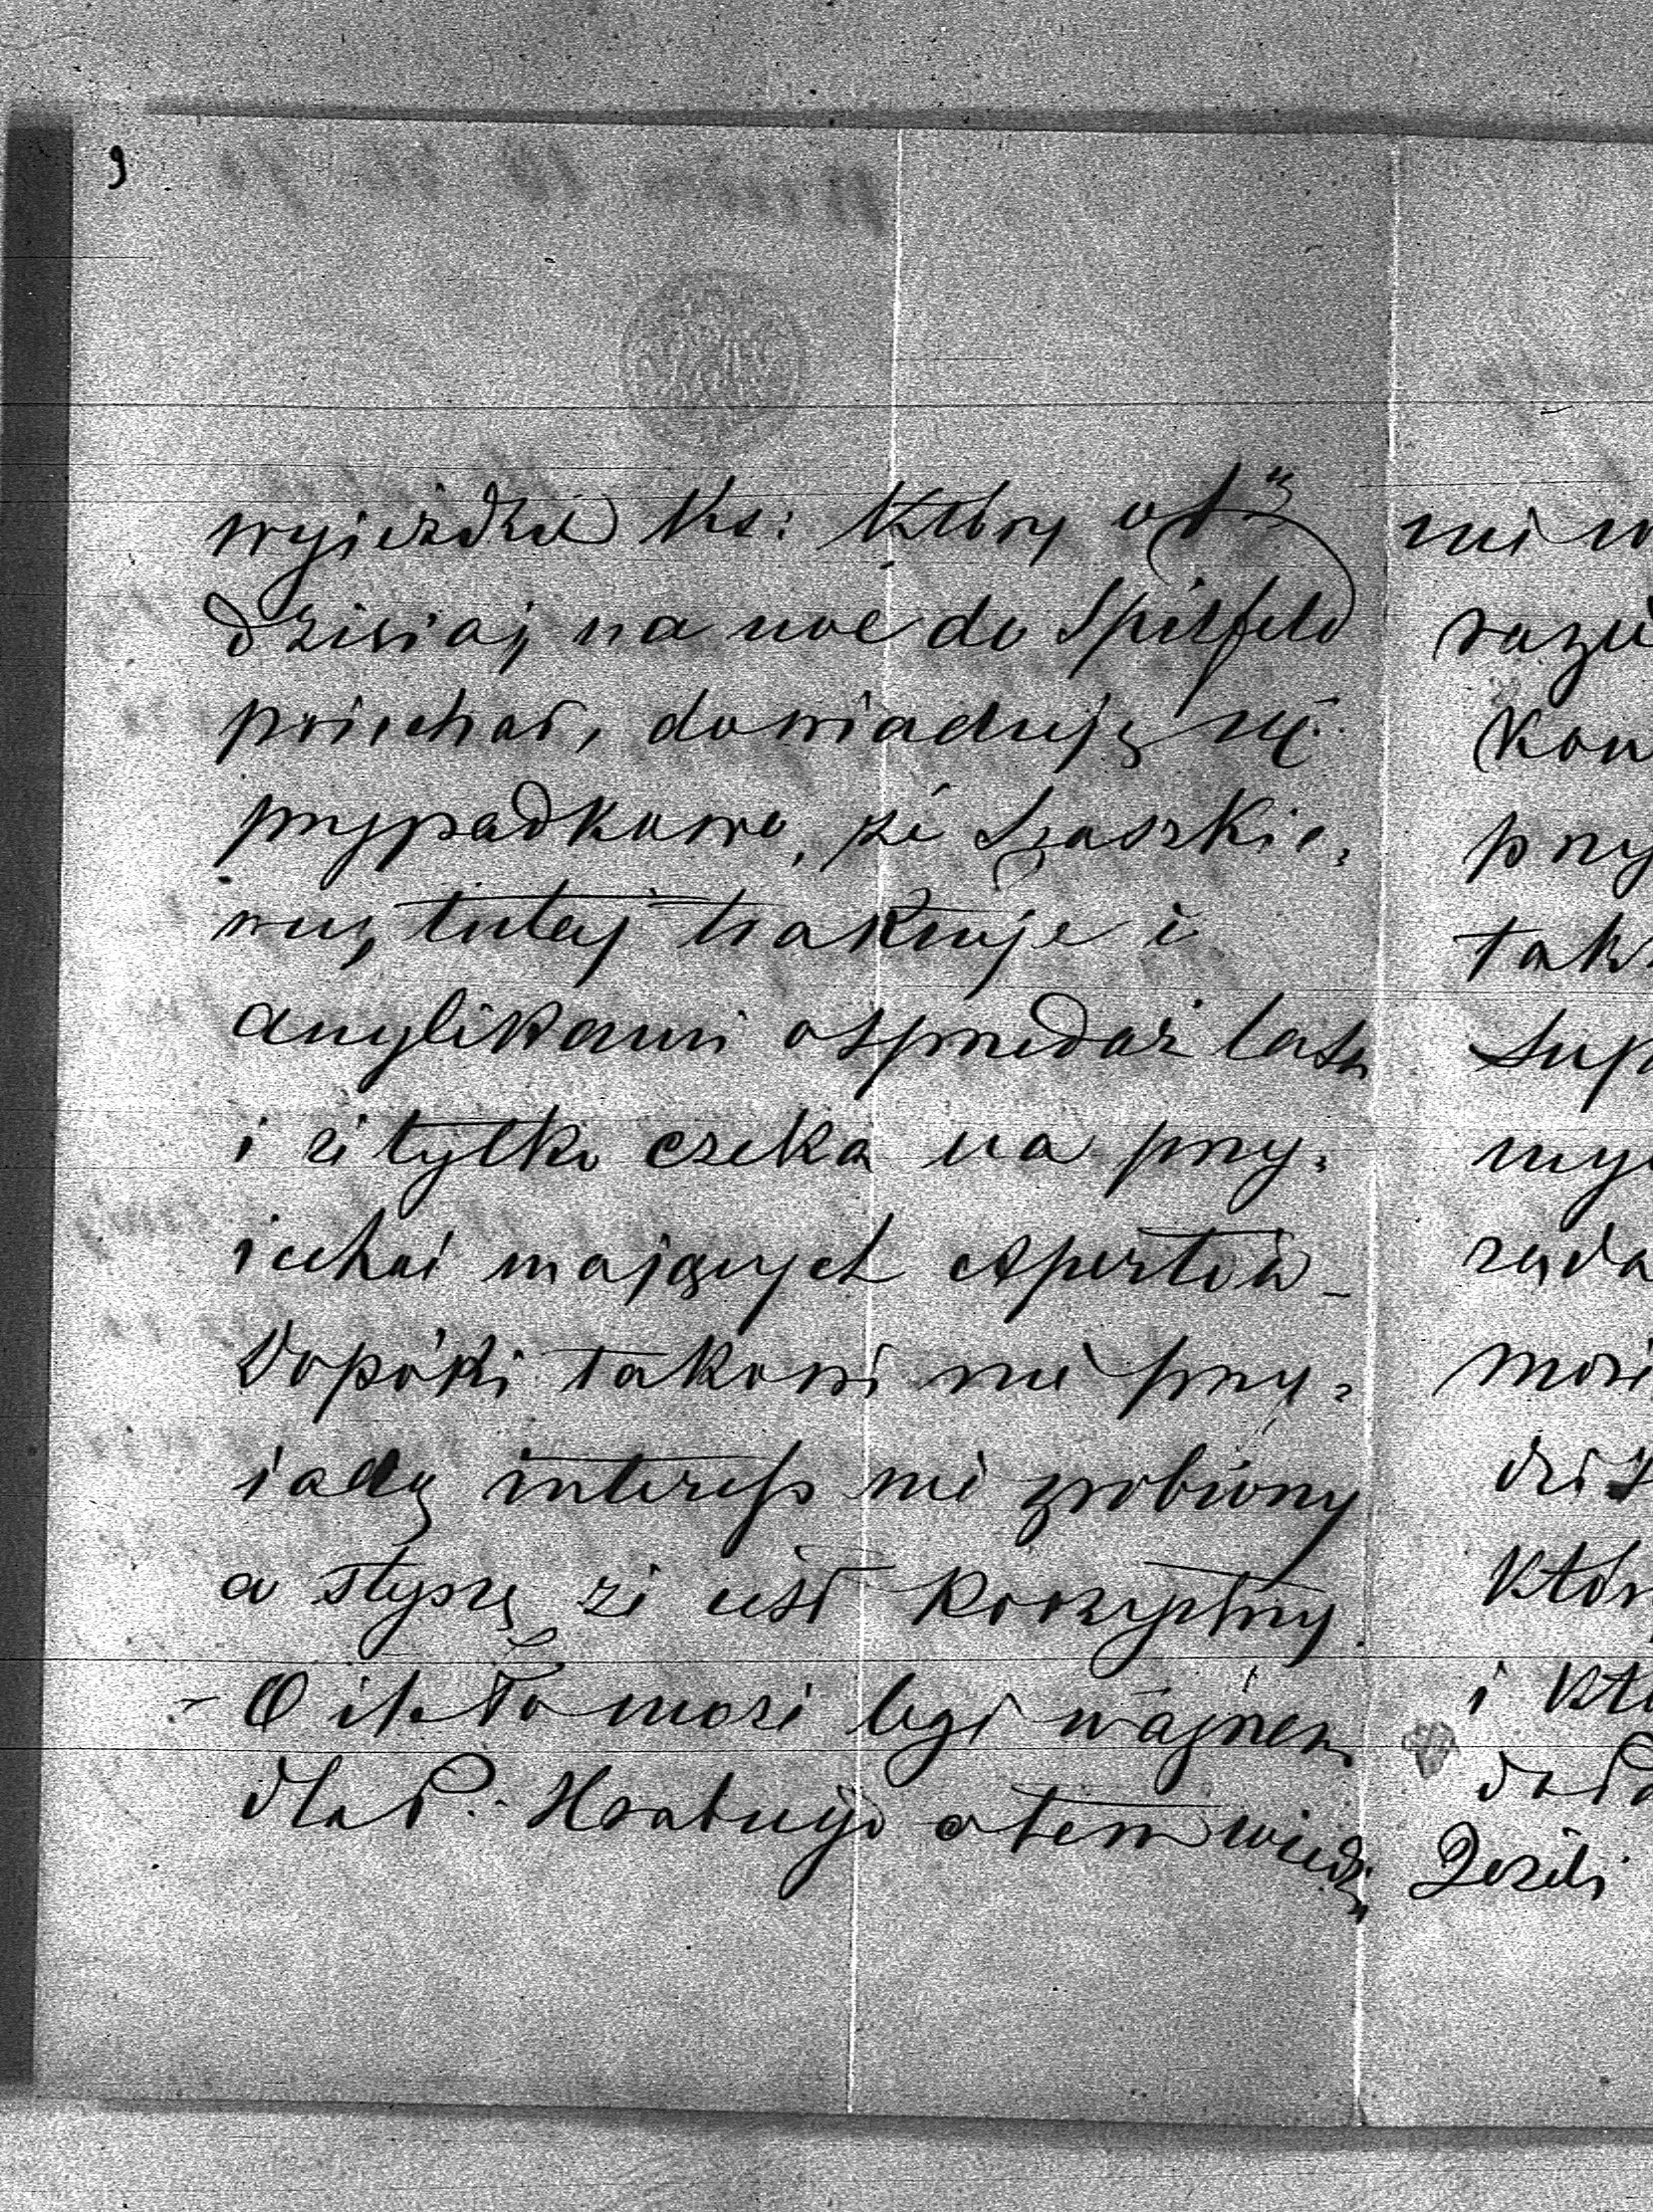 9
wyjeżdża Ks: Który
dzisiaj na noc do Spitfeld
poiechał, dowiaduję się
przypadkowo, że Szaszkie,
wicz tutaj traktuje z
anglikami o sprzedaż lasu
i że tylko czeka na przy,
iechai mających expertów_
Dopóki takowi nie przy,
iadą interess nie zrobiony
a słyszę że iest korzystny.
O ile to może być ważnem
dla P. Hrabiego o tem wiedzi
mi
razu
Kon
przy
tak
Sup
wy
rada
może
dzi
Któr
i Kt
do
Jeżeli